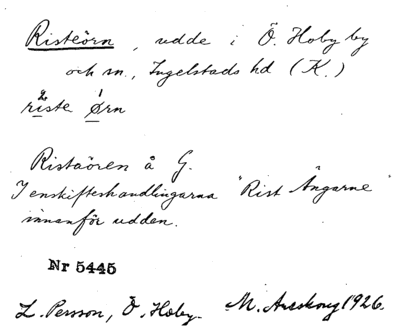 Risteörn, udde i Ö. Hoby by
och sn., Ingelstads hd (K.)
riste Ørn
Ristaören å G.
I enskifteshandlingarna "Rist Ängarne"
innanför udden.
Nr 5445
L. Persson, Ö. Hoby. M. Areskoug 1926.